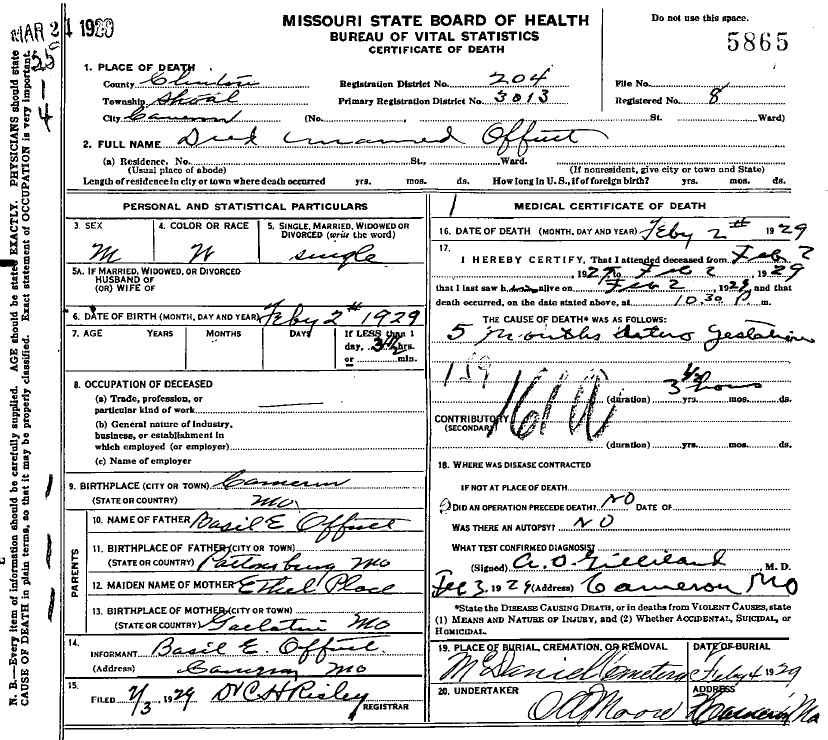 MAR 2 1 1929
MISSOURI STATE BOARD OF HEALTH
BUREAU OF VITAL STATISTICS
CERTIFICATE OF DEATH
Do not use this space.
5865
1. PLACE OF DEATH
County Clinton
Registration District No. 204
File No.
Township Shoal
Primary Registration District No. 3013
Registered No. 8
City Cameron (No. , St. Ward)
2. FULL NAME Died unnamed Offutt
(a) Residence. No. St., Ward.
(Usual place of abode) (If nonresident, give city or town and State)
Length of residence in city or town where death occurred yrs. mos. ds. How long in U.S., if of foreign birth? yrs. mos. ds.
PERSONAL AND STATISTICAL PARTICULARS
3. SEX M
4. COLOR OR RACE W
5. SINGLE, MARRIED, WIDOWED OR DIVORCED (write the word) single
5A. IF MARRIED, WIDOWED, OR DIVORCED
HUSBAND OF
(OR) WIFE OF
6. DATE OF BIRTH (MONTH, DAY AND YEAR) Feby 2nd 1929
7. AGE YEARS MONTHS DAYS If LESS than 1
day, 3 1/2 hrs.
or min.
8. OCCUPATION OF DECEASED
(a) Trade, profession, or
particular kind of work
(b) General nature of industry,
business, or establishment in
which employed (or employer)
(c) Name of employer
9. BIRTHPLACE (CITY OR TOWN) Cameron
(STATE OR COUNTRY) Mo
PARENTS
10. NAME OF FATHER Basil E Offutt
11. BIRTHPLACE OF FATHER (CITY OR TOWN)
(STATE OR COUNTRY) Pattonsburg Mo
12. MAIDEN NAME OF MOTHER Ethel Place
13. BIRTHPLACE OF MOTHER (CITY OR TOWN)
(STATE OR COUNTRY) Gallatin Mo
14. INFORMANT Basil E. Offutt
(Address) Cameron Mo
15. FILED 2/3 1929 Dr C H Risley
REGISTRAR
MEDICAL CERTIFICATE OF DEATH
16. DATE OF DEATH (MONTH, DAY AND YEAR) Feby 2nd 1929
17. I HEREBY CERTIFY, That I attended deceased from Feb 2
, 1929, to Feb 2, 1929
that I last saw h alive on Feb 2, 1929, and that
death occurred, on the date stated above, at 10.30 P. m.
THE CAUSE OF DEATH* WAS AS FOLLOWS:
5 months utero gestation
159
3 1/2 hours
(duration) yrs. mos. ds.
161a
CONTRIBUTORY
(SECONDARY)
(duration) yrs. mos. ds.
18. WHERE WAS DISEASE CONTRACTED
IF NOT AT PLACE OF DEATH
DID AN OPERATION PRECEDE DEATH? NO DATE OF
WAS THERE AN AUTOPSY? NO
WHAT TEST CONFIRMED DIAGNOSIS?
(Signed) A. O. Gilliland, M. D.
Feb 3, 1929 (Address) Cameron Mo
*State the DISEASE CAUSING DEATH, or in deaths from VIOLENT CAUSES, state
(1) MEANS AND NATURE OF INJURY, and (2) Whether ACCIDENTAL, SUICIDAL, or
HOMICIDAL.
19. PLACE OF BURIAL, CREMATION, OR REMOVAL DATE OF BURIAL
McDaniel Cemetery Feby 4 1929
20. UNDERTAKER ADDRESS
O A Moore Cameron Mo
N. B.—Every item of information should be carefully supplied. AGE should be stated EXACTLY. PHYSICIANS should state
CAUSE OF DEATH in plain terms, so that it may be properly classified. Exact statement of OCCUPATION is very important.